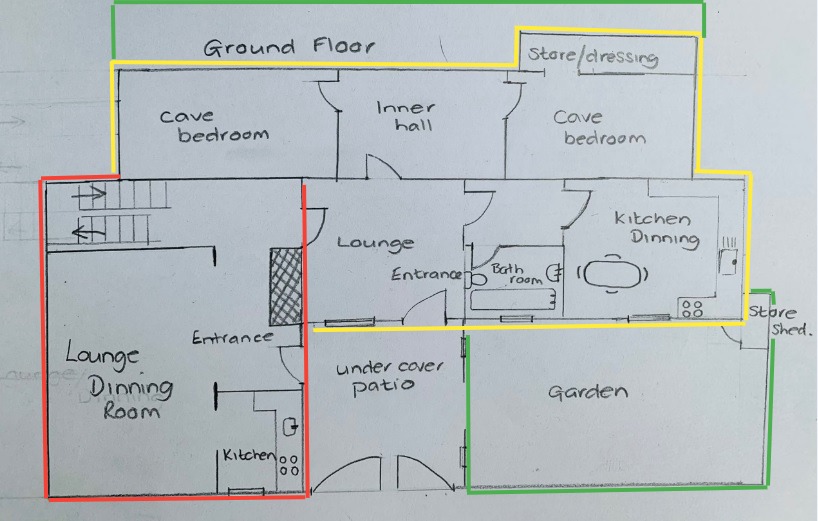 Ground Floor
Store/dressing
Cave
bedroom
Inner
hall
Cave
bedroom
Lounge
Entrance
Bath
room
Kitchen
Dinning
Store
Shed.
Entrance
Lounge
Dinning
Room
Kitchen
under cover
patio
Garden